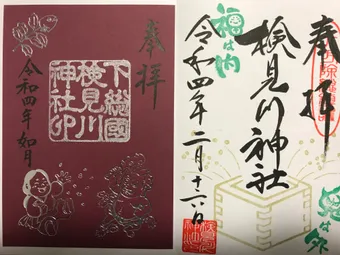 奉拝
下総國
検見川
神社印
令和四年如月
奉拝
検見川神社
令和四年二月十六日
福は内
鬼は外